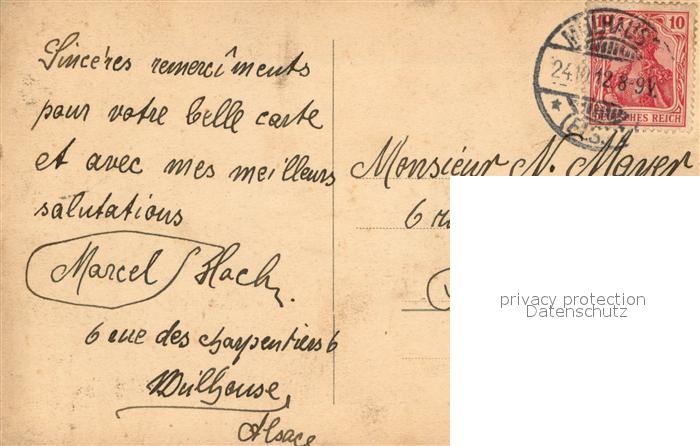 Sincères remercîments
pour votre belle carte
et avec mes meilleurs
salutations
Marcel Hach
6 rue des charpentiers 6
Mulhouse
Alsace
Monsieur N. Mayer
6 ru
10
MÜLHAUS
24. 12.8-9V.
(ELS.)
DEUTSCHES REICH
privacy protection
Datenschutz